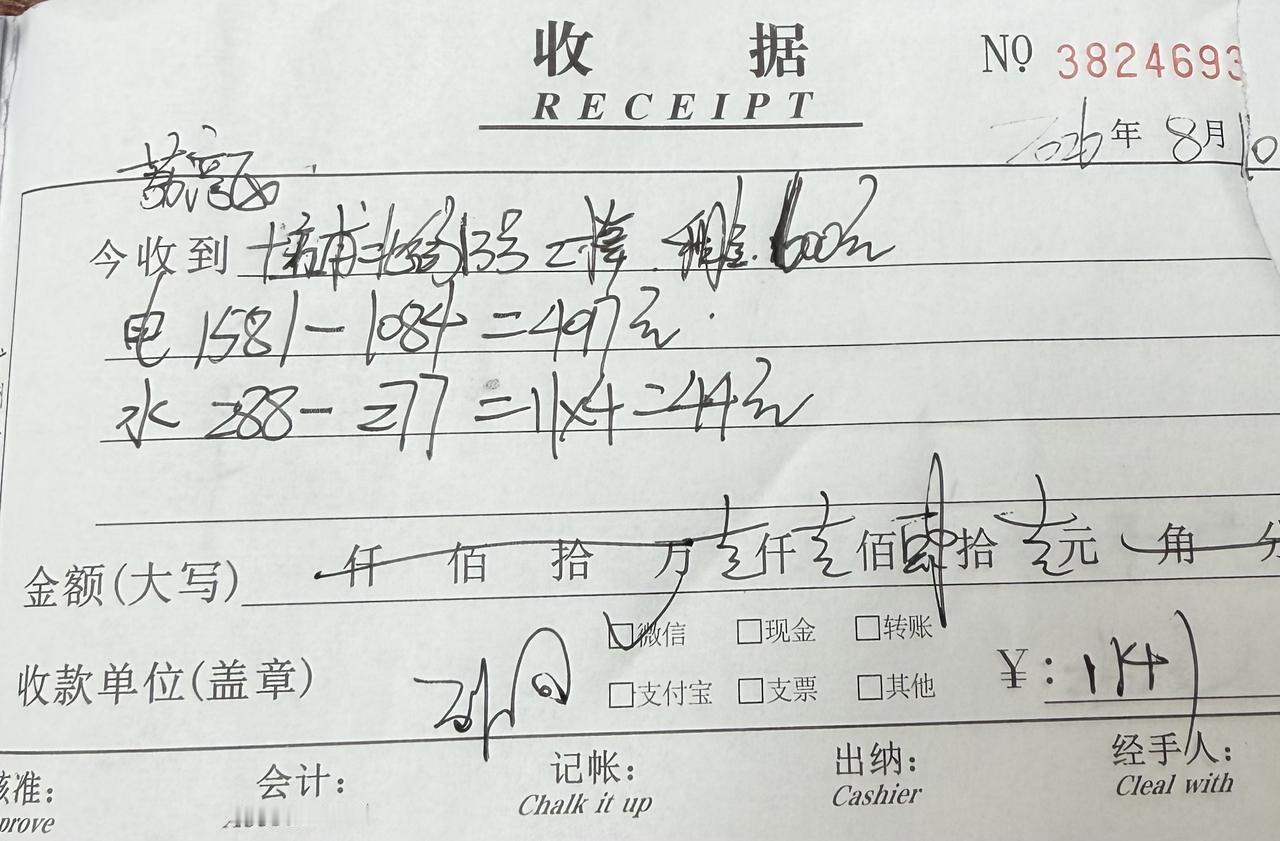 收 据
RECEIPT
№ 3824693
2026年 8月10
荔湾区
今收到 十甫北路13号二楼 租金 600元
电 1581-1084=497元
水 288-277=11×4=44元
金额(大写) 仟 佰 拾 万壹仟壹佰肆拾壹元 角 分
收款单位(盖章)
□微信 □现金 □转账
□支付宝 □支票 □其他
¥:1141
核准: 会计: 记帐: 出纳: 经手人:
prove Chalk it up Cashier Cleal with